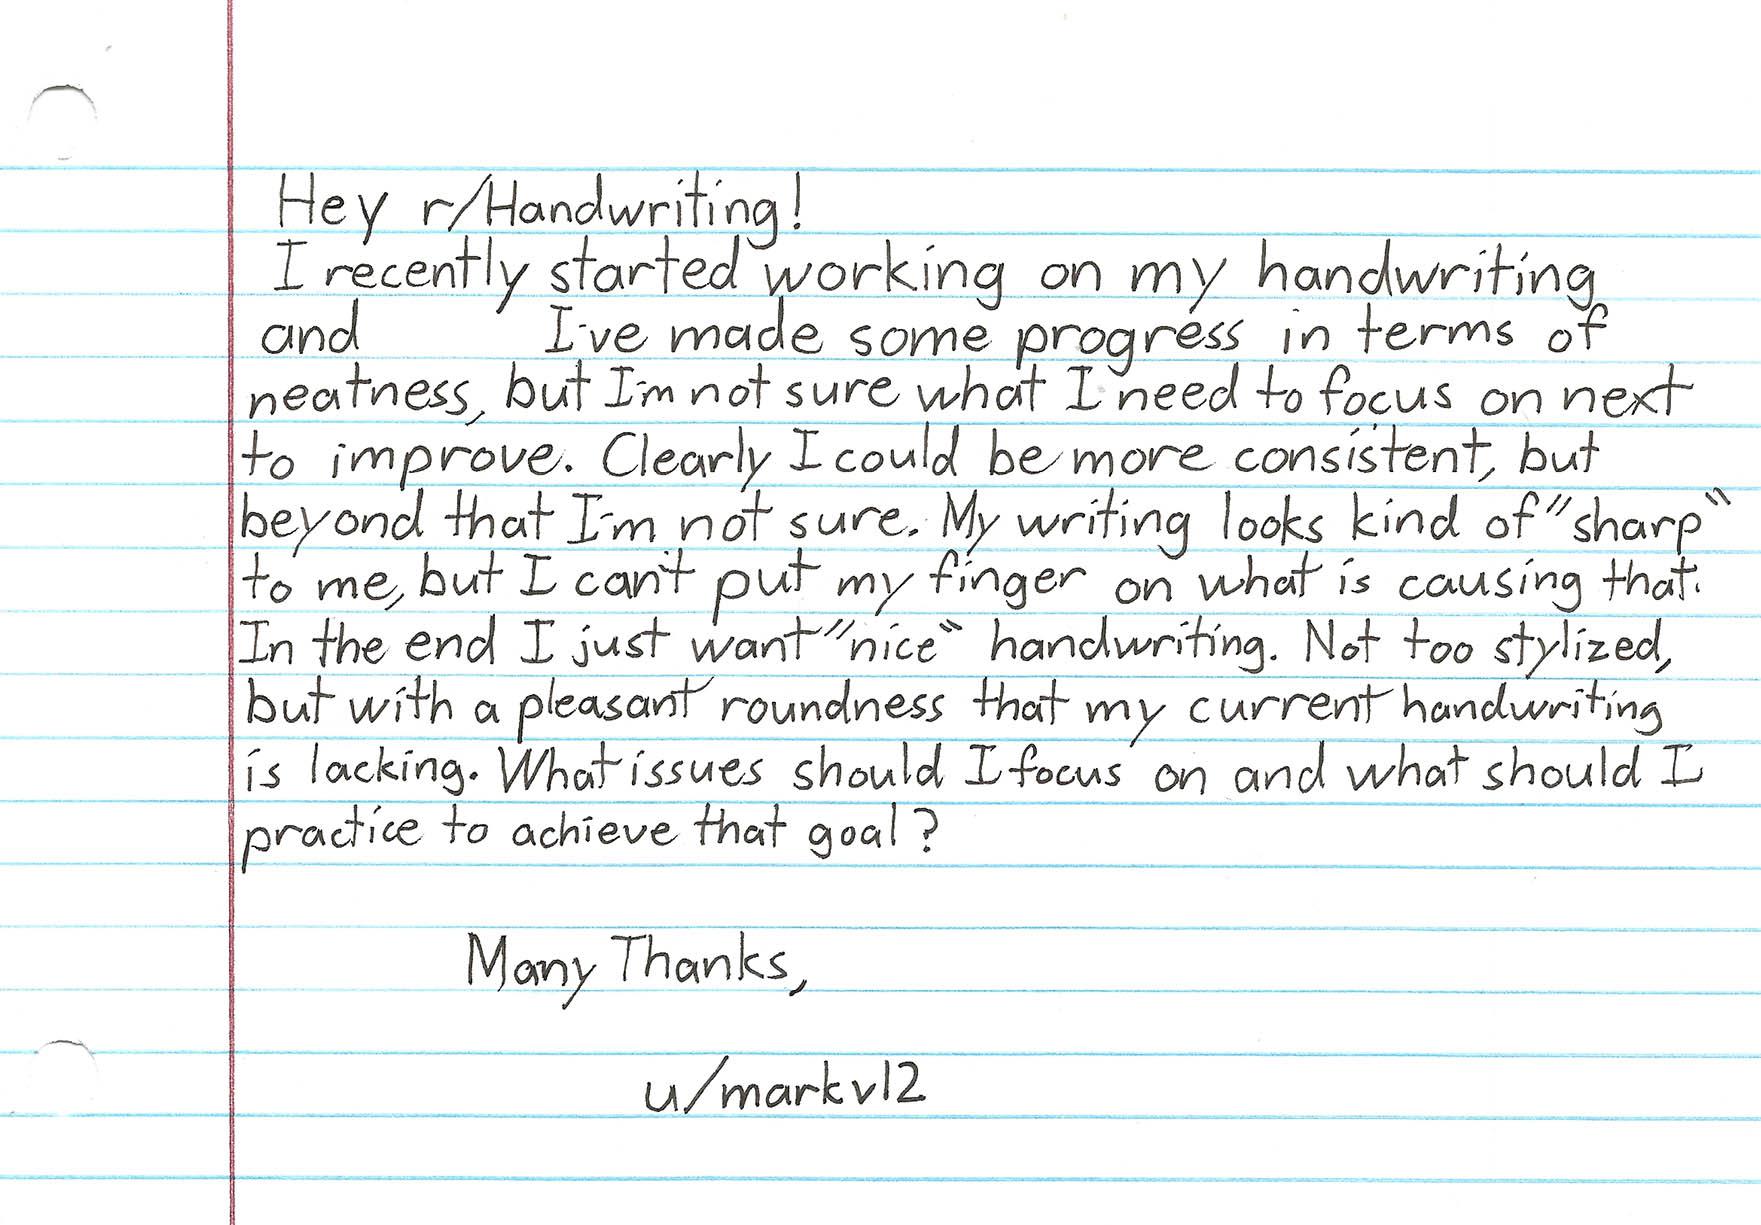 Hey r/Handwriting!
I recently started working on my handwriting
and I've made some progress in terms of
neatness, but I'm not sure what I need to focus on next
to improve. Clearly I could be more consistent, but
beyond that I'm not sure. My writing looks kind of "sharp"
to me, but I can't put my finger on what is causing that.
In the end I just want "nice" handwriting. Not too stylized,
but with a pleasant roundness that my current handwriting
is lacking. What issues should I focus on and what should I
practice to achieve that goal?
Many Thanks,
u/markv12